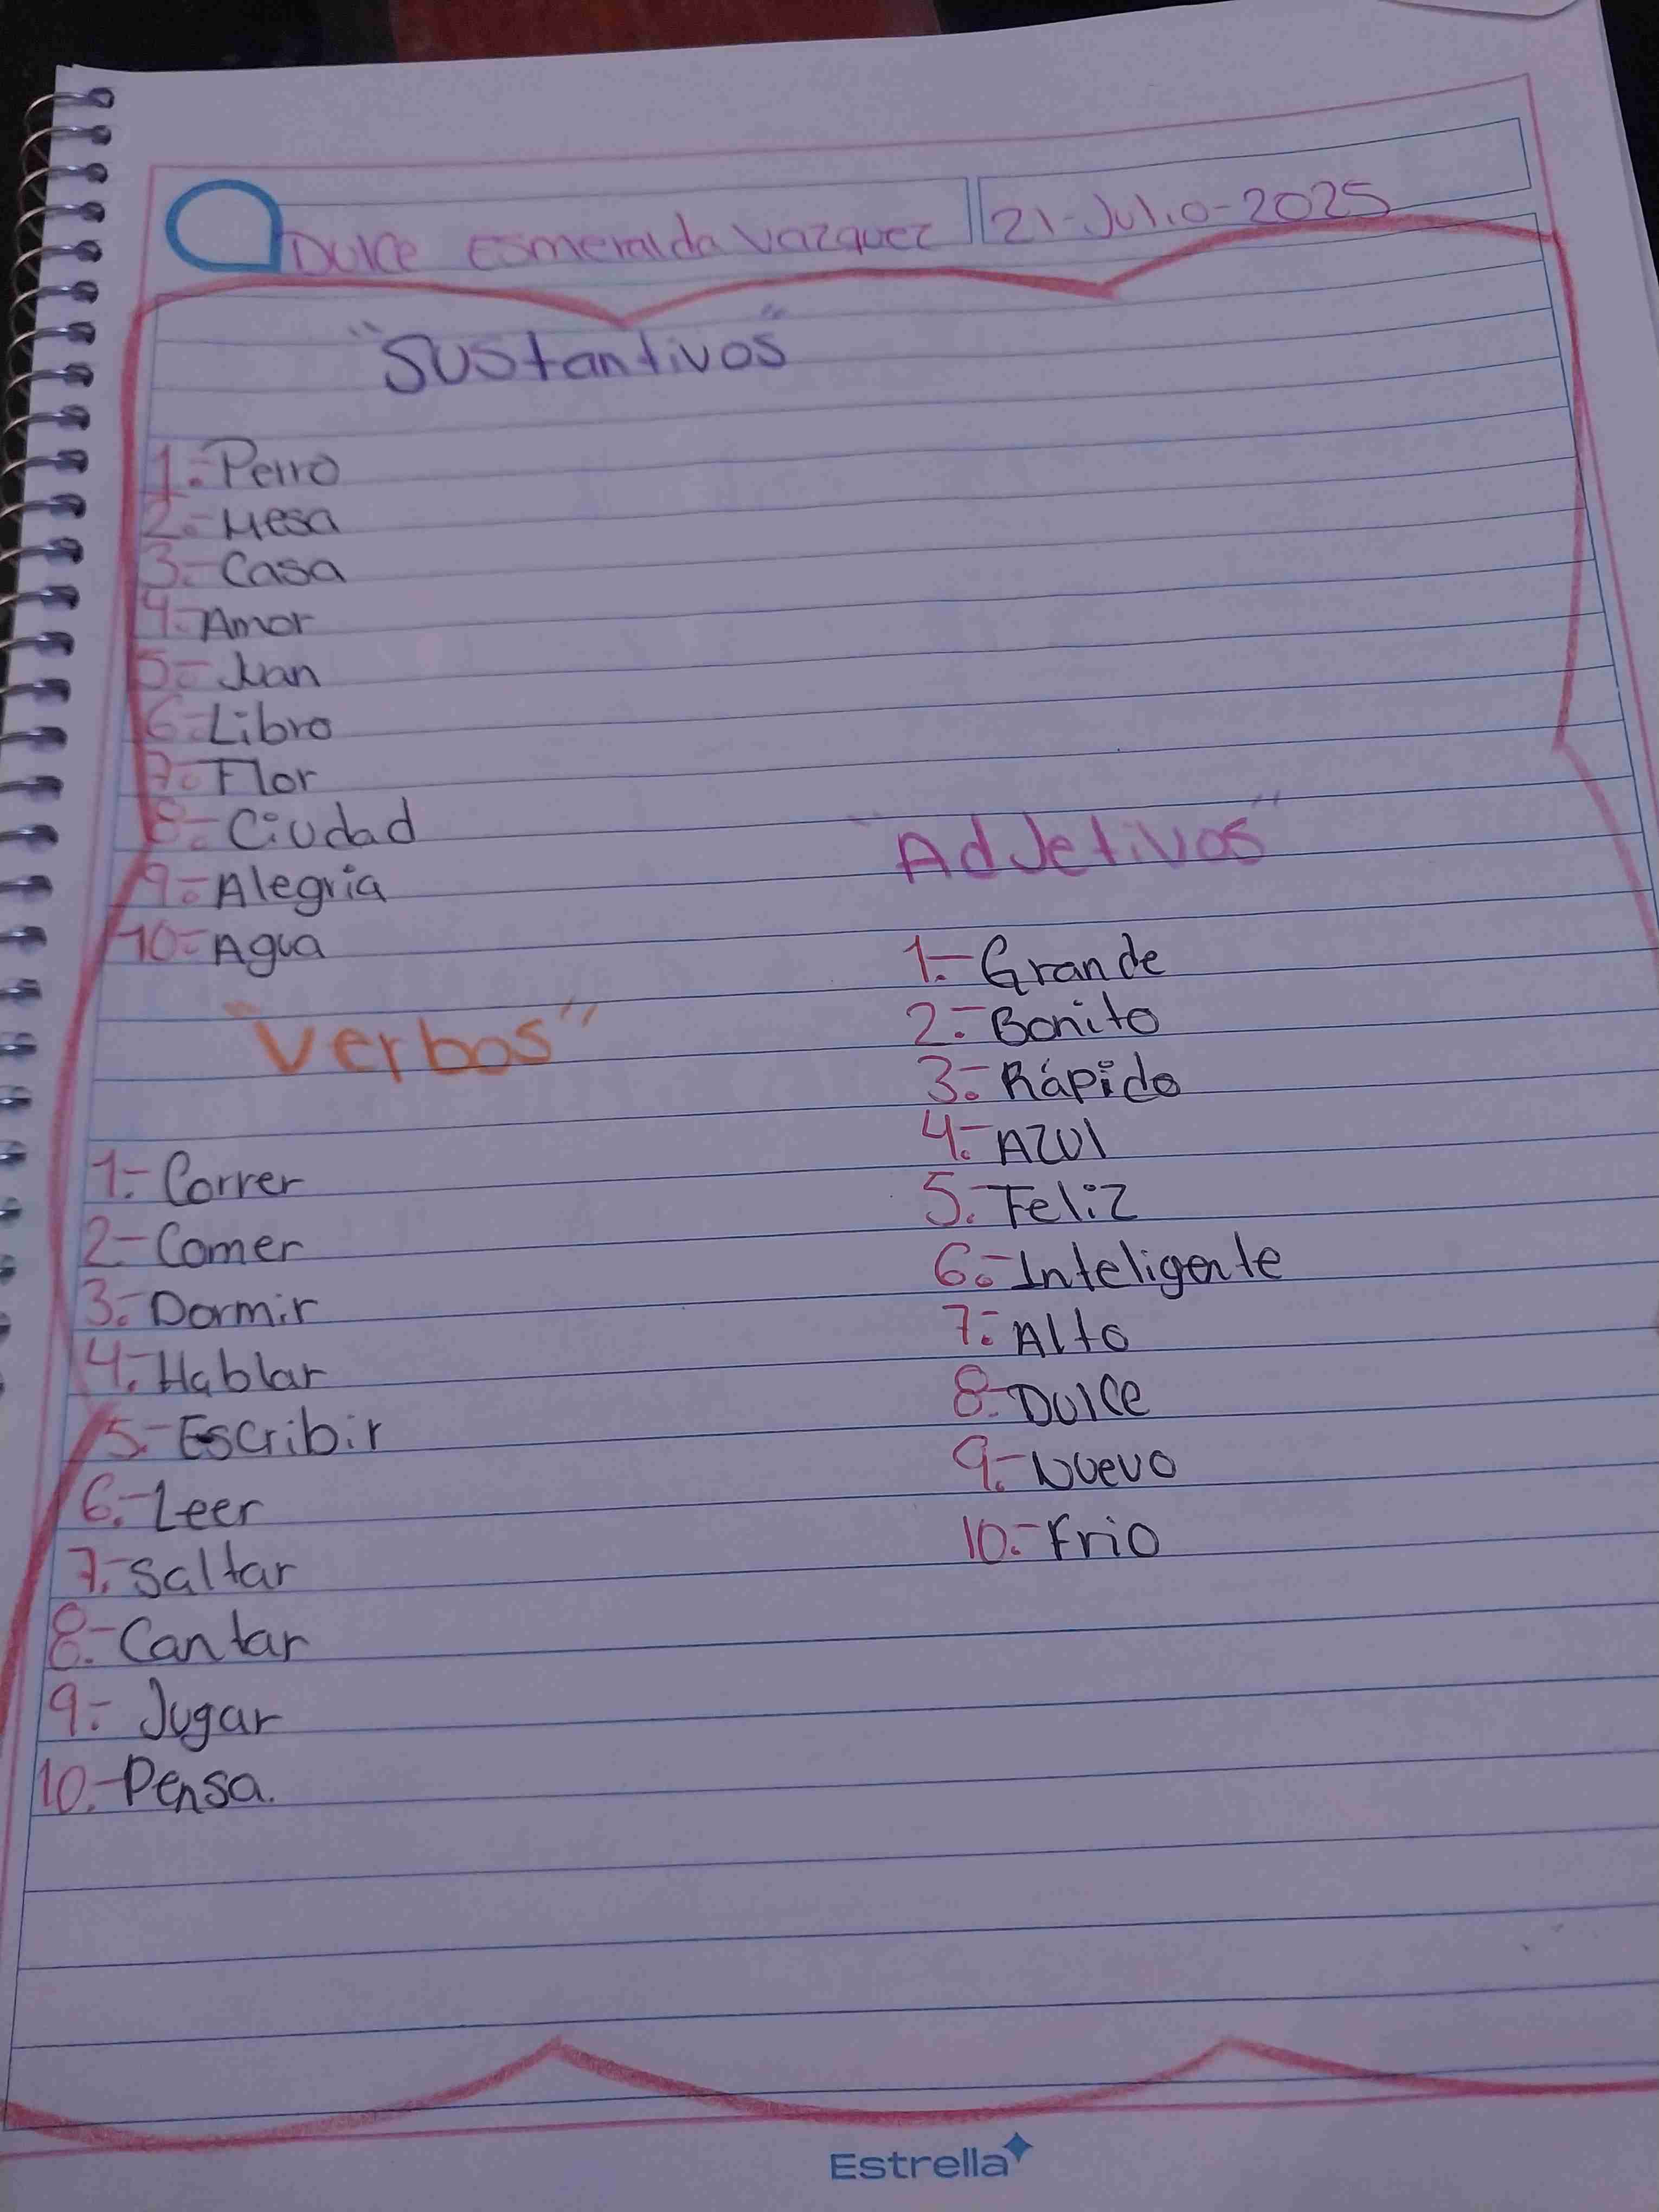 Dulce Esmeralda Vazquez
21-Julio-2025
"Sustantivos"
1.- Perro
2.- Mesa
3.- Casa
4.- Amor
5.- Juan
6.- Libro
7.- Flor
8.- Ciudad
9.- Alegria
10.- Agua
"Verbos"
1.- Correr
2.- Comer
3.- Dormir
4.- Hablar
5.- Escribir
6.- Leer
7.- Saltar
8.- Cantar
9.- Jugar
10.- Pensa.
"AdJetivos"
1.- Grande
2.- Bonito
3.- Rápido
4.- Azul
5.- Feliz
6.- Inteligente
7.- Alto
8.- Dulce
9.- Nuevo
10.- Frio
Estrella